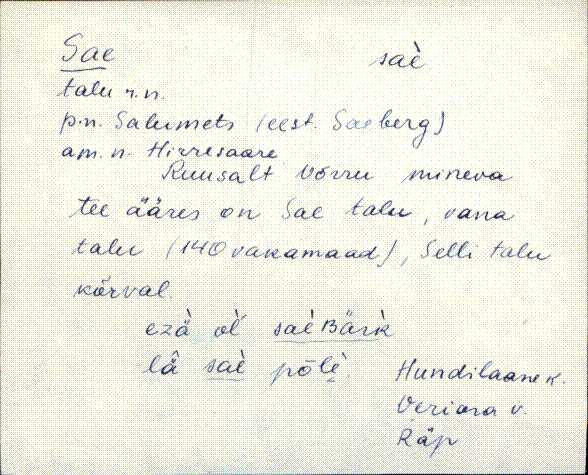 Sae saè
talu r.n.
p.n. Salumets (eest. Saeberg)
am. n. Hirresaare
Ruusalt Võrru mineva
tee ääres on Sae talu, vana
talu (140 vakamaad), Selli talu
kõrval.
ezä òĺ saèBäŕk
lâ saè põlè.
Hundilaane k.
Veriora v.
Räp